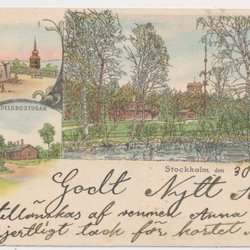 DELSBOSTUGAN
Stockholm, den 30
Godt Nytt
tillönskas af vennen Anna
hjertligt tack för kortet